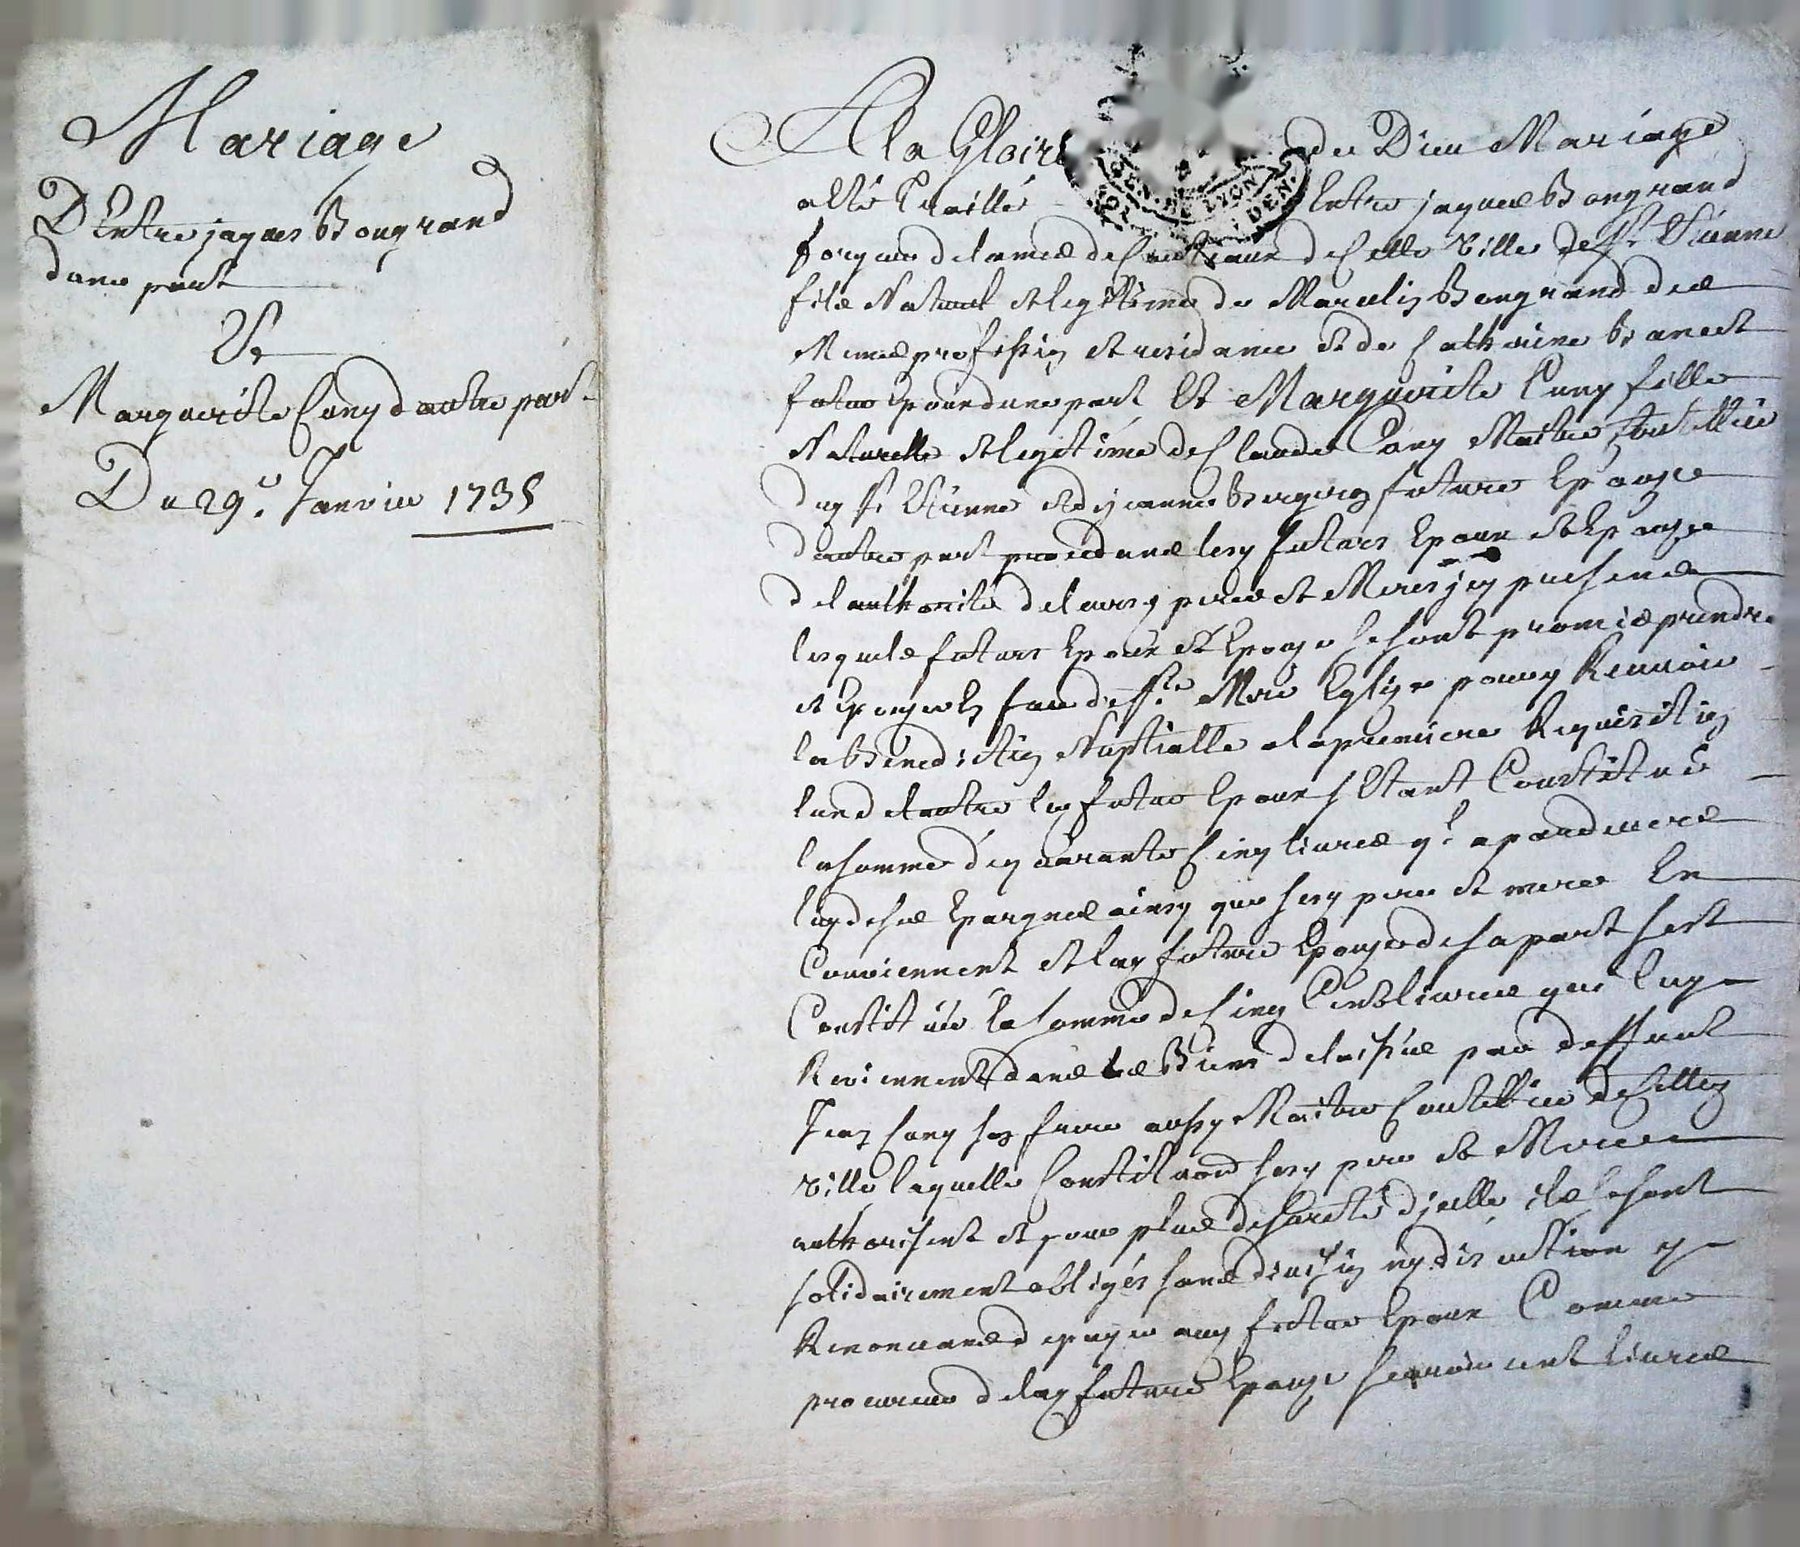 Mariage
D'Entre jaques Bongrand
dune part
Et
Margueritte Cony dautre part
Du 29e. Janvier 1735
A la Gloire de Dieu Mariage
a esté traitté Entre jaques Bongrand
forgeur de lames de Couteaux de Cette Ville de St. Etienne
fils Naturel et legittime de Marcelin Bongrand des
Memes profession et residance et de Catherine
futur Epoux dune part Et Marguerite Cony fille
Naturelle et legitime de Claude Cony Maitre Coutellier
dud St Etienne et de jeanne future Epouse
dautre part procedans lesd futurs Epoux et Epouse
de lauthorité de leursd peres et Meres jcy presens
lesquels futurs Epoux et Epouse se sont promis prendre
et Epouser En face de Ste Mere Eglise pour y Recevoir
la Benediction Nuptialle a la premiere Requisition
lun de lautre led futur Epoux sEtant Constitué
la somme de quarante Cinq livres
de ses Epargnes ainsy que sesd pere et mere En
Conviennent et lad future Epouse de sa part sest
Constituée la somme de Cinq Cent livres qui luy
Reviennent dans les Biens delaissés par deffunt
Jean Cony son frere aussy Maitre Coutellier de Cette
Ville laquelle Constitution sesd pere et Mere
authorisent et pour plus de sureté d'jcelle ils se sont
solidairement obligés sans division ny discution y
Renonceans de payer aud futur Epoux Comme
procureur de lad future Epouse scavoir cent livres
GEN. DE LYON
DEN.